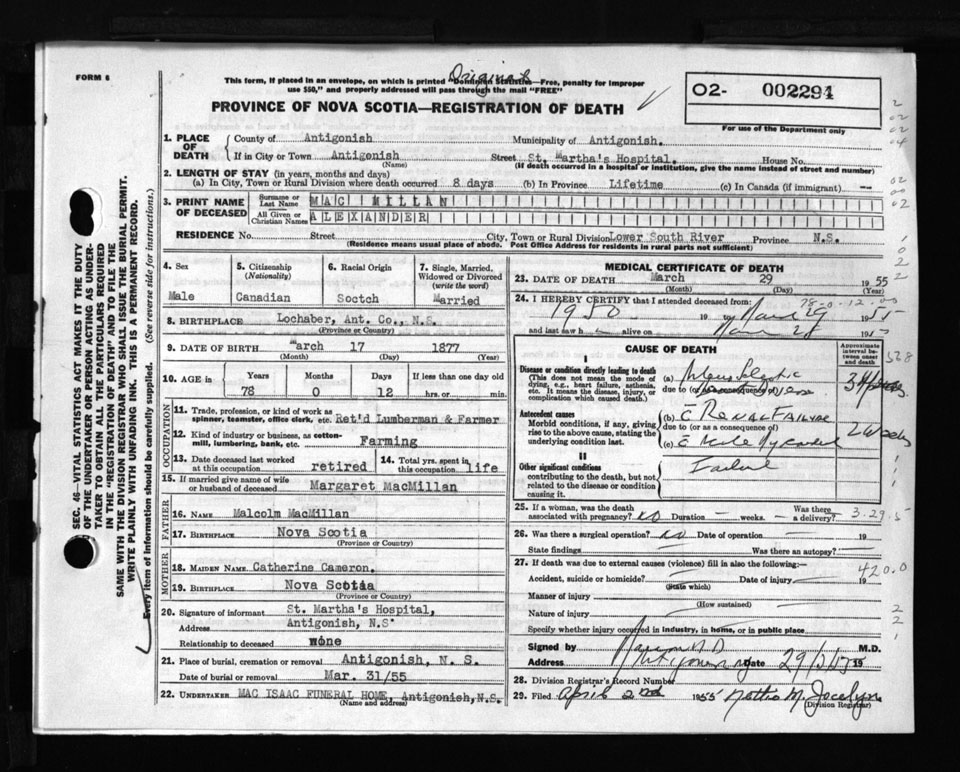 FORM 6
Original
This form, if placed in an envelope, on which is printed "Dominion Statistics—Free, penalty for improper
use $50," and properly addressed will pass through the mail "FREE"
PROVINCE OF NOVA SCOTIA—REGISTRATION OF DEATH
02- 002294
For use of the Department only
1. PLACE OF DEATH
County of Antigonish Municipality of Antigonish.
If in City or Town Antigonish Street St. Martha's Hospital. House No.
(Name) (If death occurred in a hospital or institution, give the name instead of street and number)
2. LENGTH OF STAY (in years, months and days)
(a) In City, Town or Rural Division where death occurred 8 days (b) In Province Lifetime (c) In Canada (if immigrant) --
3. PRINT NAME OF DECEASED
Surname or Last Name MAC MILLAN
All Given or Christian Names ALEXANDER
RESIDENCE No. Street City, Town or Rural Division Lower South River Province N.S.
(Residence means usual place of abode. Post Office Address for residents in rural parts not sufficient)
4. Sex
Male
5. Citizenship
(Nationality)
Canadian
6. Racial Origin
Soctch
7. Single, Married,
Widowed or Divorced
(write the word)
Married
8. BIRTHPLACE Lochaber, Ant. Co., N.S.
(Province or Country)
9. DATE OF BIRTH March 17 1877
(Month) (Day) (Year)
10. AGE in Years Months Days If less than one day old
78 0 12 hrs. or min.
OCCUPATION
11. Trade, profession, or kind of work as
spinner, teamster, office clerk, etc. Ret'd Lumberman & Farmer
12. Kind of industry or business, as cotton-
mill, lumbering, bank, etc. Farming
13. Date deceased last worked
at this occupation retired
14. Total yrs. spent in
this occupation life
15. If married give name of wife
or husband of deceased Margaret MacMillan
FATHER
16. Name Malcolm MacMillan
17. Birthplace Nova Scotia
(Province or Country)
MOTHER
18. MAIDEN NAME Catherine Cameron.
19. Birthplace Nova Scotia
(Province or Country)
20. Signature of informant St. Martha's Hospital,
Address Antigonish, N.S
Relationship to deceased none
21. Place of burial, cremation or removal Antigonish, N. S.
Date of burial or removal Mar. 31/55
22. UNDERTAKER MAC ISAAC FUNERAL HOME, Antigonish, N.S.
(Name and address)
MEDICAL CERTIFICATE OF DEATH
23. DATE OF DEATH March 29 1955
(Month) (Day) (Year)
24. I HEREBY CERTIFY that I attended deceased from: 78-0-12-00
1950 19 to March 29 1955
and last saw h alive on 19
CAUSE OF DEATH
Approximate interval between onset and death
I
Disease or condition directly leading to death
(This does not mean the mode of
dying, e.g., heart failure, asthenia,
etc. It means the disease, injury, or
complication which caused death.)
(a)
due to (or as a consequence of)
Antecedent causes
Morbid conditions, if any, giving
rise to the above cause, stating the
underlying condition last.
(b) c Renal Failure
due to (or as a consequence of) 2 Weeks
(c)
II
Other significant conditions
contributing to the death, but not
related to the disease or condition
causing it.
Failure
25. If a woman, was the death
associated with pregnancy? No Duration — weeks. — Was there a delivery? 3.29.5
26. Was there a surgical operation? No Date of operation — 19
State findings Was there an autopsy?
27. If death was due to external causes (violence) fill in also the following:— 420.0
Accident, suicide or homicide? Date of injury 19
(State which)
Manner of injury
(How sustained)
Nature of injury
Specify whether injury occurred in industry, in home, or in public place
Signed by M.D.
Address Antigonish Date 29/3/55 19
28. Division Registrar's Record Number
29. Filed April 2nd 1955 M. Jocelyn
(Division Registrar)
SEC. 46—VITAL STATISTICS ACT MAKES IT THE DUTY
OF THE UNDERTAKER OR PERSON ACTING AS UNDER-
TAKER TO OBTAIN ALL THE PARTICULARS REQUIRED
IN THE "REGISTRATION OF DEATH" AND TO FILE THE
SAME WITH THE DIVISION REGISTRAR WHO SHALL ISSUE THE BURIAL PERMIT.
WRITE PLAINLY WITH UNFADING INK. THIS IS A PERMANENT RECORD.
Every item of information should be carefully supplied. (See reverse side for instructions.)